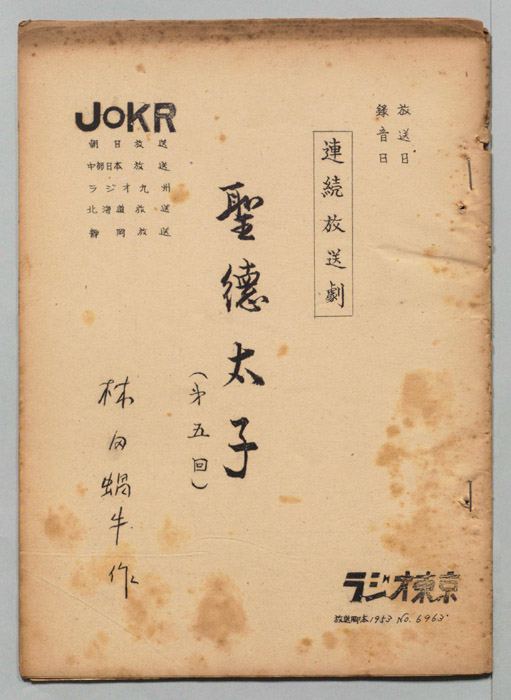 放送日
録音日
連続放送劇
聖徳太子
(第五回)
林田蝸牛作
JOKR
朝日放送
中部日本放送
ラジオ九州
北海道放送
静岡放送
ラジオ東京
放送脚本1953 No.6963